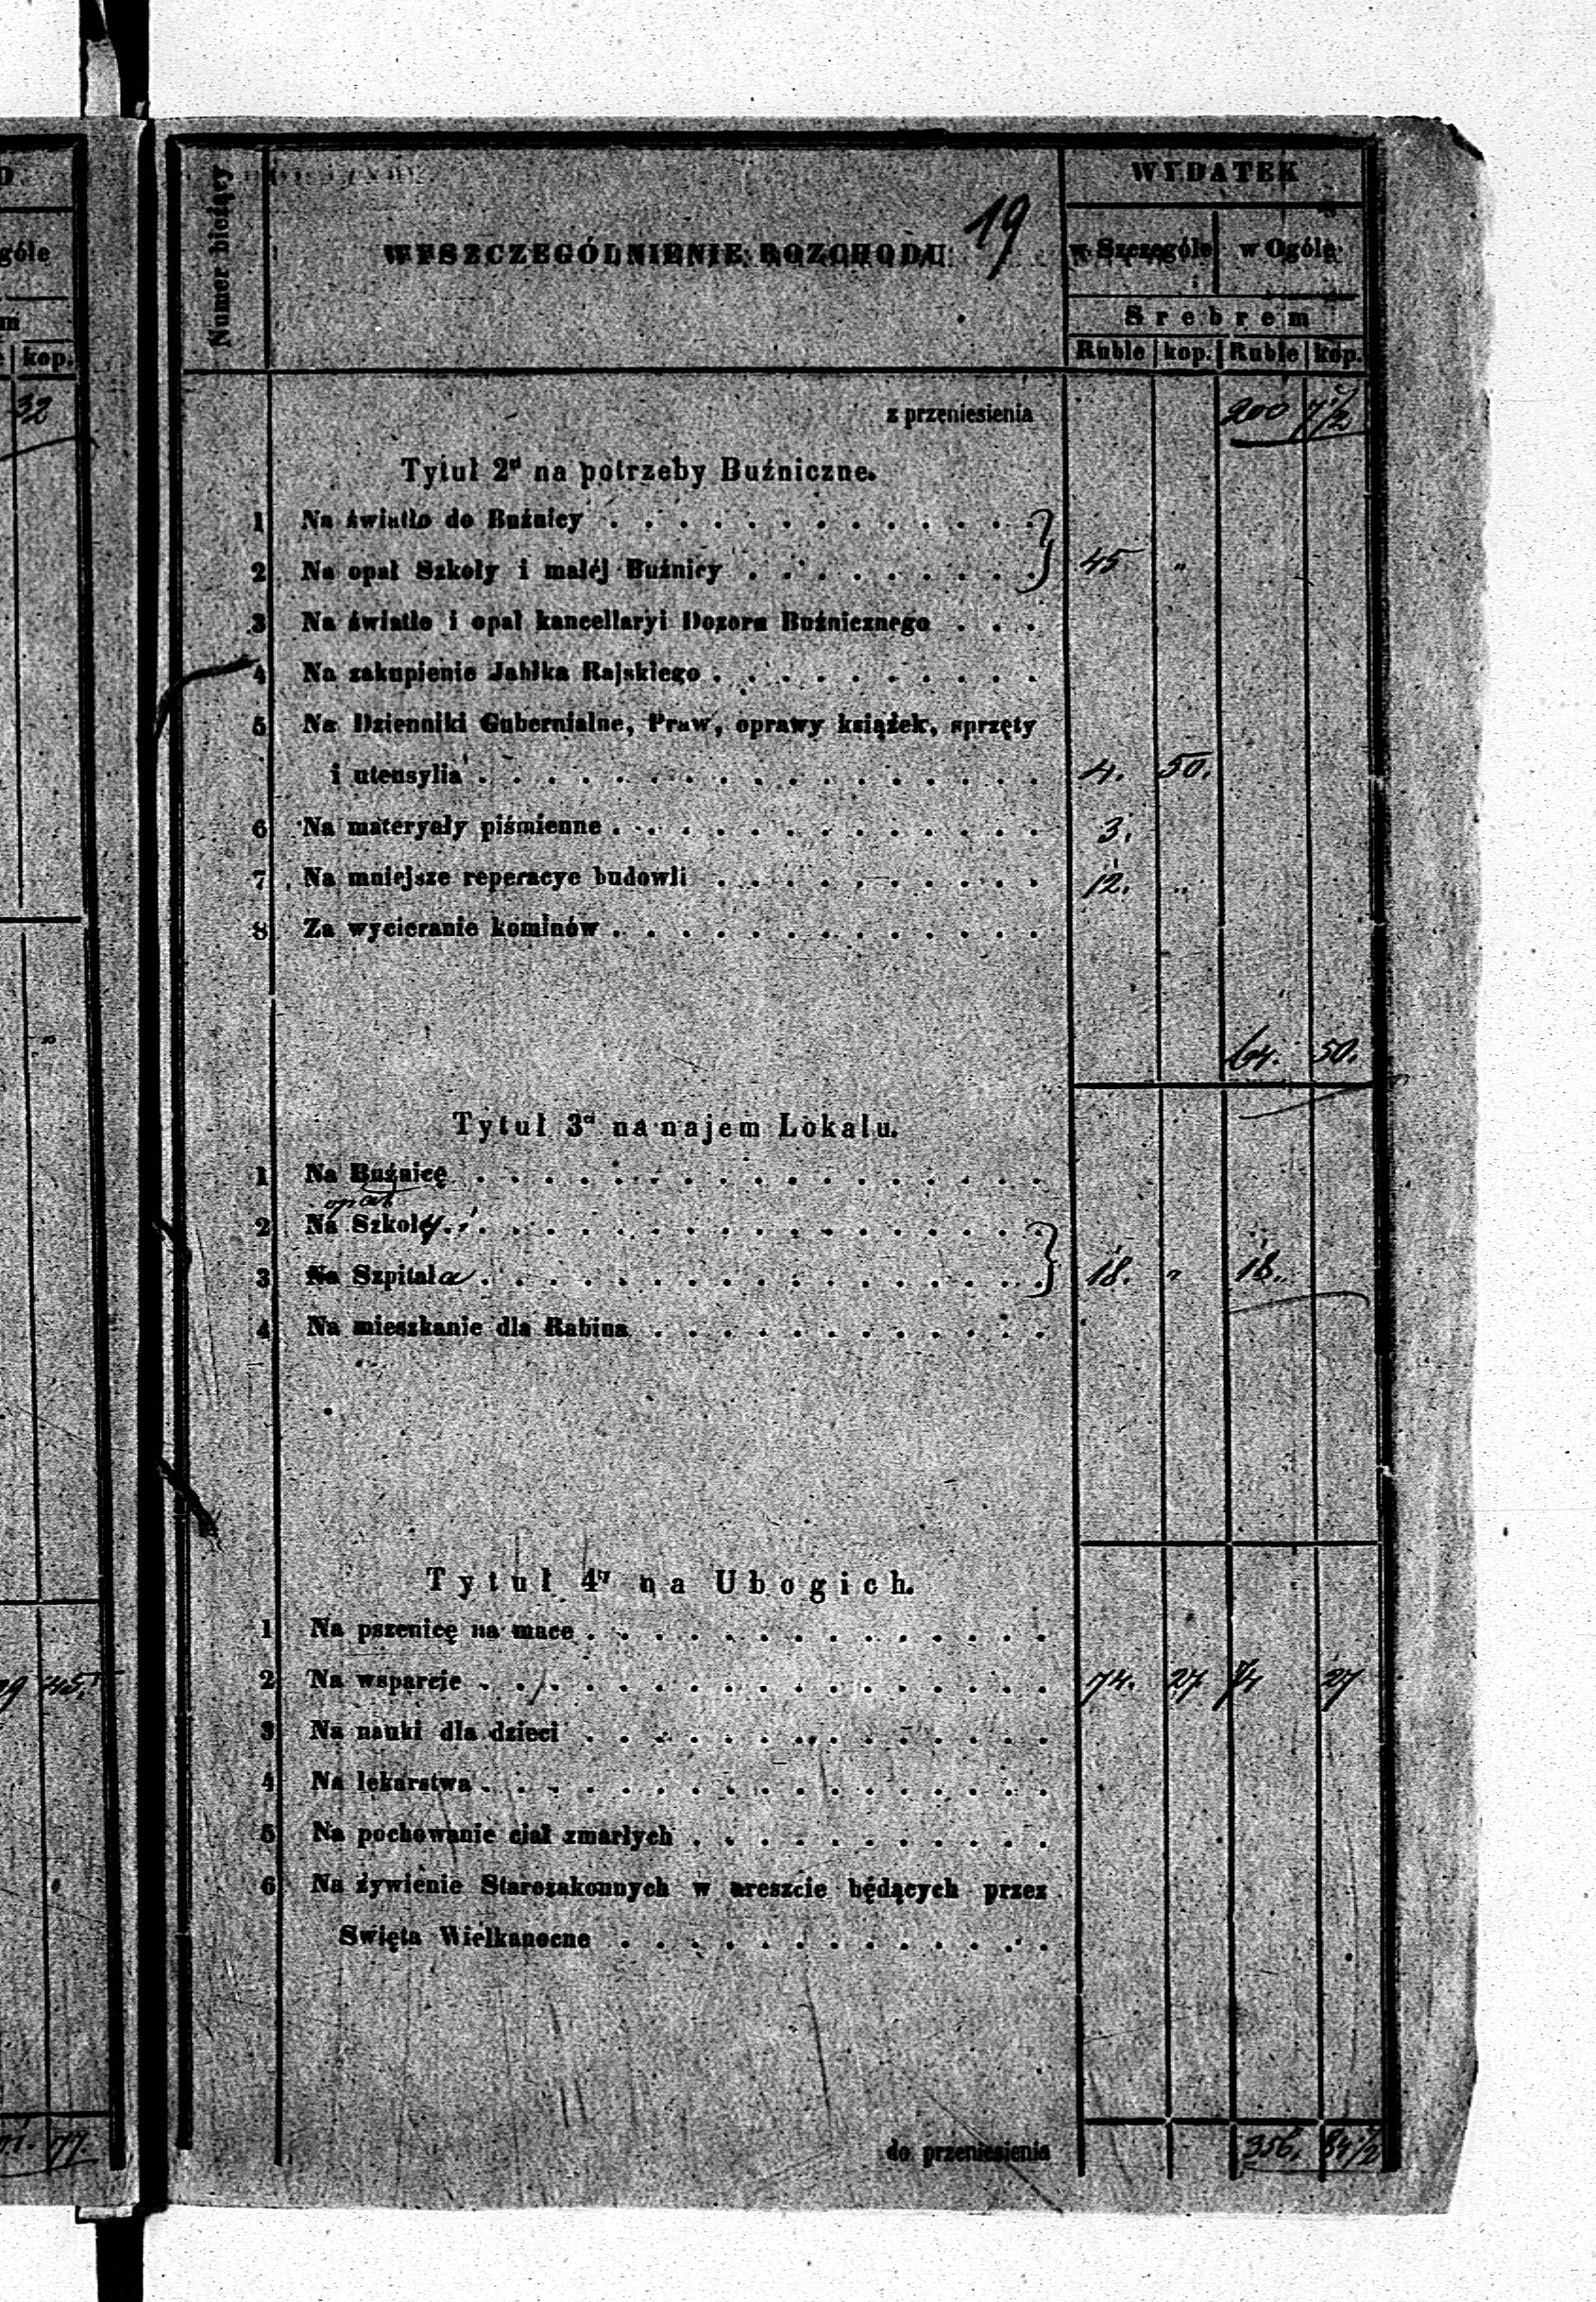 góle
kop.
32
45.
77.
19
Numer bieżący
WYSZCZEGÓLNIENIE ROZCHODU
WYDATEK
w Szczególe w Ogóle
Srebrem
Ruble kop. Ruble kop.
z przeniesienia 200 7 1/2
Tytuł 2gi na potrzeby Buźniczne.
1 Na światło do Buźnicy . . . . . . . . . . . . . }
2 Na opał Szkoły i małéj Buźnicy . . . . . . . . . } 45 „
3 Na światło i opał kancellaryi Dozoru Buźnicznego . . .
4 Na zakupienie Jabłka Rajskiego . . . . . . . . . .
5 Na Dzienniki Gubernialne, Praw, oprawy książek, sprzęty
i utensylia . . . . . . . . . . . . . . . . . 4. 50.
6 Na materyały piśmienne . . . . . . . . . . . . . 3.
7 Na mniejsze reperacye budowli . . . . . . . . . . 12. „
8 Za wycieranie kominów . . . . . . . . . . . . .
64. 50.
Tytuł 3ci na najem Lokalu.
1 Na Buźnicę . . . . . . . . . . . . . . . . .
opał
2 Na Szkoły . . . . . . . . . . . . . . . . . }
3 Na Szpitala . . . . . . . . . . . . . . . . . } 18. „ 18.
4 Na mieszkanie dla Rabina . . . . . . . . . . . .
Tytuł 4ty na Ubogich.
1 Na pszenicę na mace . . . . . . . . . . . . . .
2 Na wsparcie . . . . . . . . . . . . . . . . . 74. 27. 74 27
3 Na nauki dla dzieci . . . . . . . . . . . . . .
4 Na lekarstwa . . . . . . . . . . . . . . . . .
5 Na pochowanie ciał zmarłych . . . . . . . . . . .
6 Na żywienie Starozakonnych w areszcie będących przez
Święta Wielkanocne . . . . . . . . . . . . .
do przeniesienia 356. 84 1/2